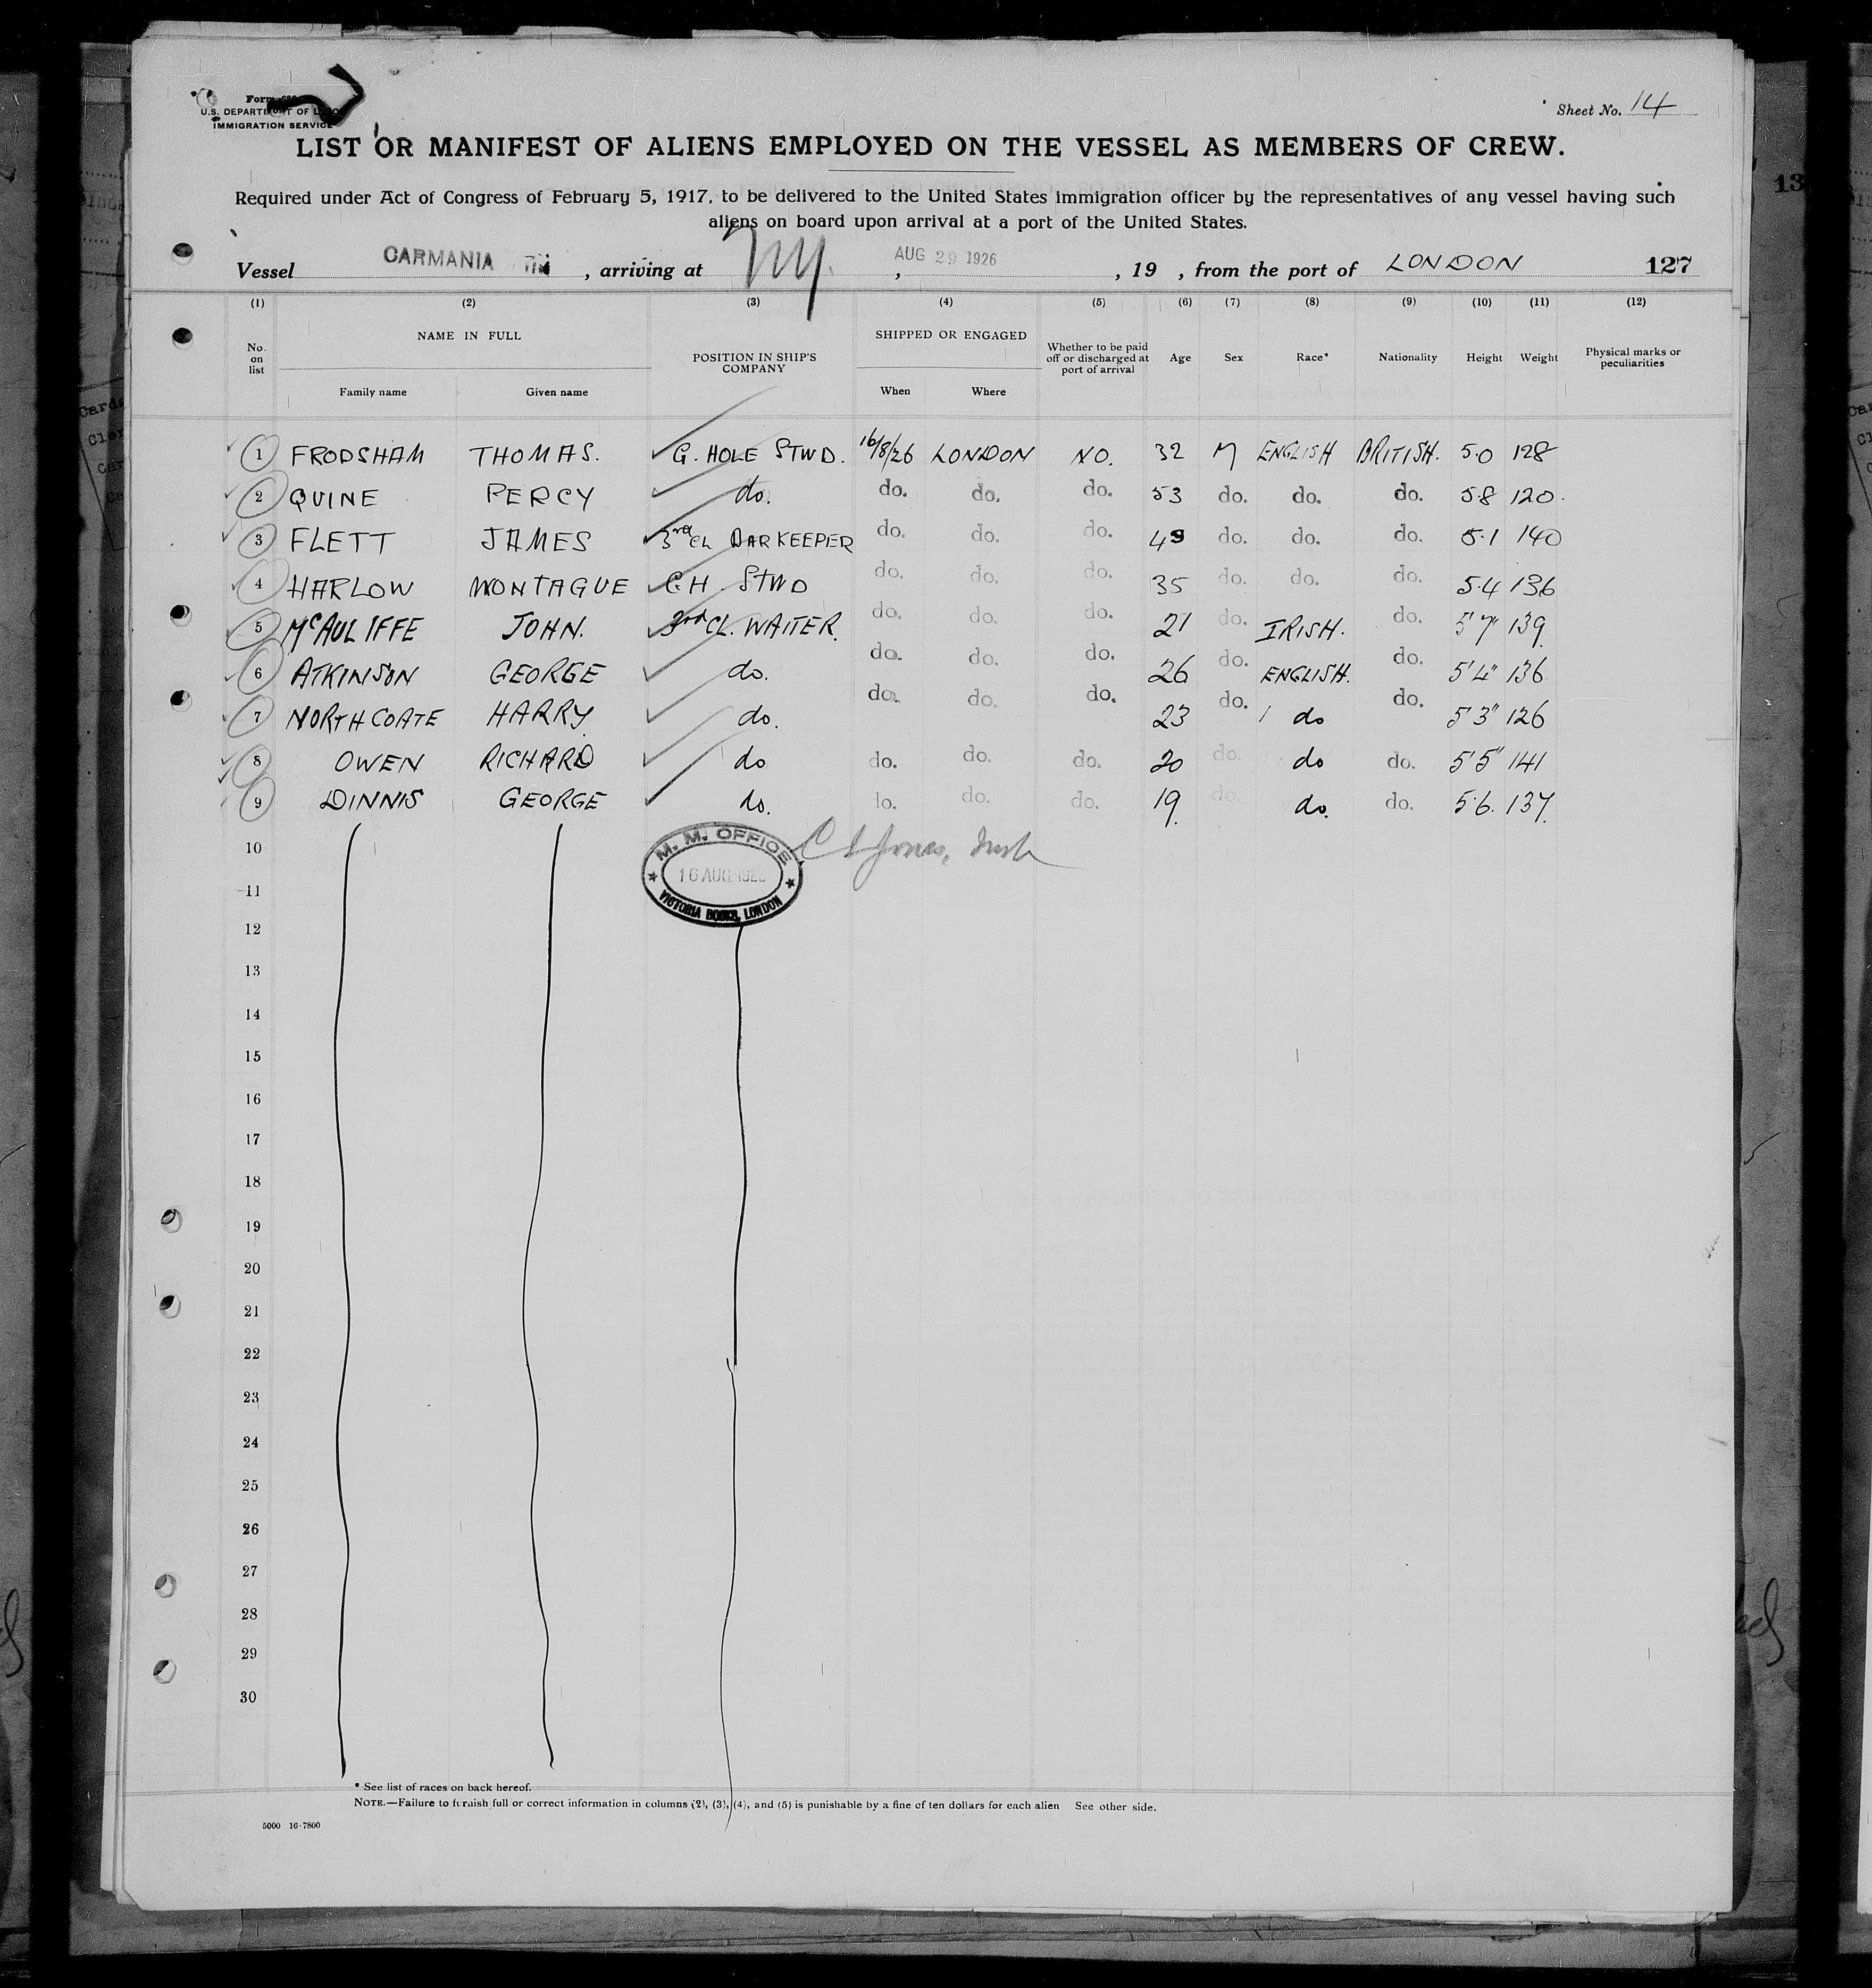 Form
U.S. DEPARTMENT OF LABOR
IMMIGRATION SERVICE
Sheet No. 14
LIST OR MANIFEST OF ALIENS EMPLOYED ON THE VESSEL AS MEMBERS OF CREW.
Required under Act of Congress of February 5, 1917, to be delivered to the United States immigration officer by the representatives of any vessel having such
aliens on board upon arrival at a port of the United States.
Vessel CARMANIA , arriving at NY. , AUG 29 1926 , 19 , from the port of LONDON 127
(1) (2) (3) (4) (5) (6) (7) (8) (9) (10) (11) (12)
No. on list NAME IN FULL POSITION IN SHIP'S COMPANY SHIPPED OR ENGAGED Whether to be paid off or discharged at port of arrival Age Sex Race* Nationality Height Weight Physical marks or peculiarities
Family name Given name When Where
1 FRODSHAM THOMAS. G. HOLE STWD. 16/8/26 LONDON NO. 32 M ENGLISH BRITISH. 5.0 128
2 QUINE PERCY do. do. do. do. 53 do. do. do. 5.8 120.
3 FLETT JAMES 3rd CL BARKEEPER do. do. do. 49 do. do. do. 5.1 140
4 HARLOW MONTAGUE G.H. STWD do. do. do. 35 do. do. do. 5.4 136
5 McAULIFFE JOHN. 3rd CL. WAITER. do. do. do. 21 do. IRISH. do. 5'7" 139.
6 ATKINSON GEORGE do. do. do. do. 26 do. ENGLISH. do. 5'4" 136
7 NORTHCOATE HARRY. do. do. do. do. 23 do. do do. 5'3" 126
8 OWEN RICHARD do do. do. do. 20 do. do do. 5'5" 141
9 DINNIS GEORGE do. do. do. do. 19. do. do. do. 5.6. 137.
10
M. M. OFFICE
16 AUG. 1926
VICTORIA DOCKS, LONDON
11
12
13
14
15
16
17
18
19
20
21
22
23
24
25
26
27
28
29
30
* See list of races on back hereof.
NOTE.—Failure to furnish full or correct information in columns (2), (3), (4), and (5) is punishable by a fine of ten dollars for each alien See other side.
5000 16-7800